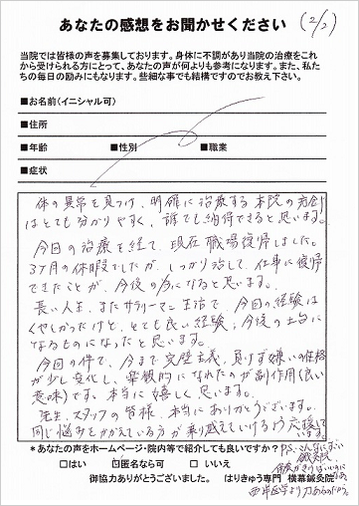 あなたの感想をお聞かせください (2/2)
当院では皆様の声を募集しております。身体に不調があり当院の治療をこれ
から受けられる方にとって、あなたの声が何よりも参考になります。また、私た
ちの毎日の励みにもなります。些細な事でも結構ですのでお教え下さい。
■お名前(イニシャル可)
■住所
■年齢 ■性別 ■職業
■症状
体の異常を見つけ、明確に治療する本院の方針
はとても分かりやすく、誰でも納得できると思います。
今回の治療を経て、現在職場復帰しました。
3ヶ月の休暇でしたが、しっかり治して、仕事に復帰
できたことが、今後の為になると思います。
長い人生、またサラリーマン生活で、今回の経験は
くやしかったけど、とても良い経験、今後の土台に
なるものになったと思います。
今回の件で、今まで完璧主義、負けず嫌いの性格
が少し変化し、楽観的になれたのが副作用(良い
意味)です。本当に嬉しく思います。
先生、スタッフの皆様、本当にありがとうございます。
同じ悩みをかかえている方が乗り越えていけるよう応援して
います。
*あなたの声をホームページ・院内等で紹介しても良いですか?
□はい ☑匿名なら可 □いいえ
御協力ありがとうございました。 はりきゅう専門 横幕鍼灸院
P.S.
西洋医学より